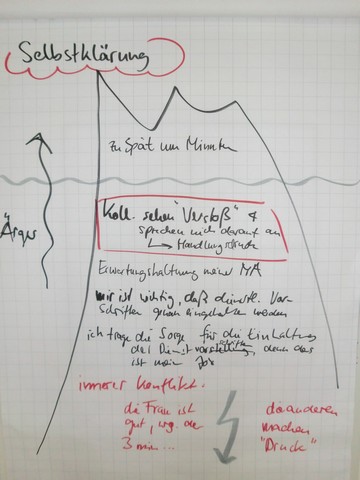 Selbstklärung
zu Spät um Minuten
Ärger
Koll. sehen "Verstoß" &
sprechen mich darauf an
↳ Handlungsdruck
Erwartungshaltung meiner MA
mir ist wichtig, daß dienstl. Vor-
schriften genau eingehalten werden
ich trage die Sorge für die Einhaltung
der Dienstvorschriften, denn das
ist mein Job
innerer Konflikt.
die Frau ist
gut, wg. der
3 min...
die anderen
machen
"Druck"